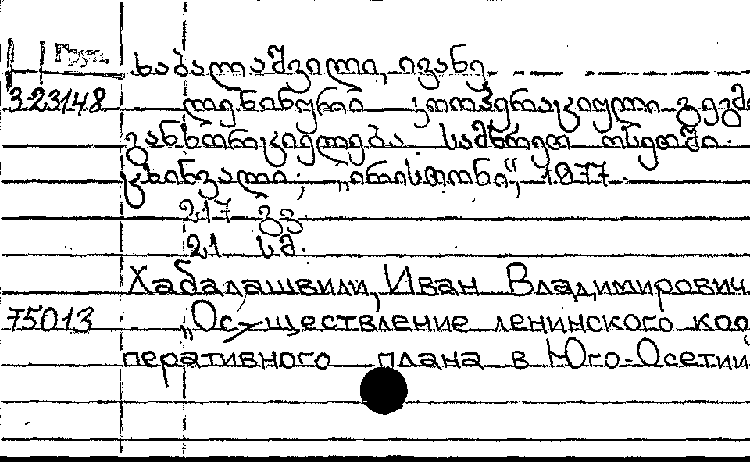 Груз.
ხაბალაშვილი, ივანე
323148 ლენინური კოოპერაციული გეგმ
განხორციელება სამხრეთ ოსეთში.
ცხინვალი, „ირისთონი“, 1977.
217 გვ
21 სმ.
Хабалашвили, Иван Владимирович
75013 „Осуществление ленинского коо
перативного плана в Юго-Осетии